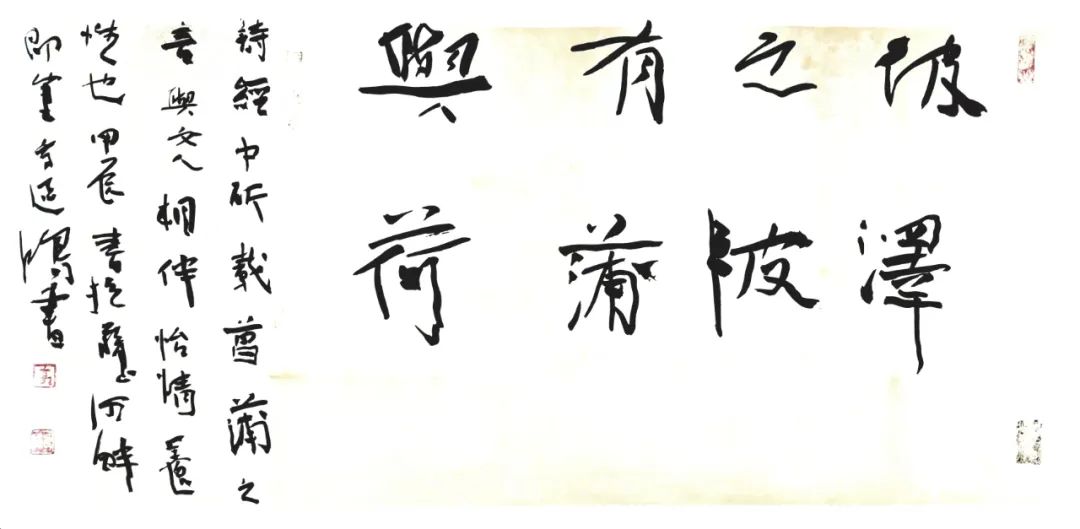 彼澤
之陂
有蒲
與荷
詩經中所載菖蒲之
與文人相伴怡情養
性也甲辰書於河畔
即書